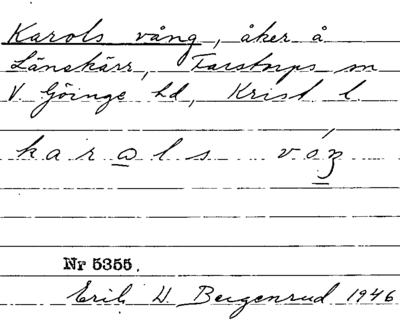 Karols vång, åker å
Länskärr, Farstorps sn
V. Göinge hd, Krist l.
karals vóŋ
Nr 5355.
Erik W. Bergenrud 1946